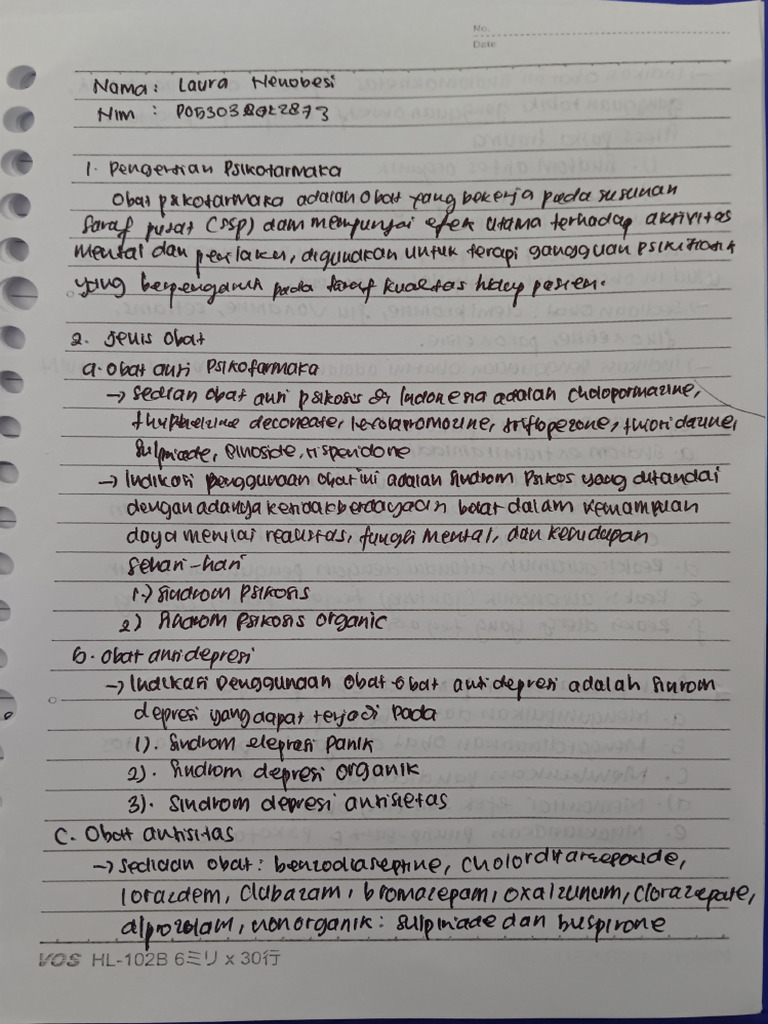 No.
Date
Nama : Laura Nenobesi
Nim :
1. Pengertian Psikofarmaka
Obat psikofarmaka adalah obat yang bekerja pada susunan
saraf pusat (SSP) dam mempunyai efek utama terhadap aktivitas
mental dan perilaku, digunakan untuk terapi gangguan psikiatrik
yang berpengaruh pada taraf kualitas hidup pasien.
2. Jenis Obat
a. Obat anti Psikofarmaka
→ Sedian obat anti psikosis di Indonesia adalah
deconeate, thioridazine,
risperidone
→ Indikasi penggunaan obat ini adalah sindrom Psikos yang ditandai
dengan adanya berat dalam kemampuan
daya menilai realitas, fungsi mental, dan kehidupan
sehari-hari
1.) Sindrom Psikosis
2) Sindrom psikosis organic
b. Obat antidepresi
→ Indikasi Penggunaan obat-obat antidepresi adalah sinrom
depresi yang dapat terjadi pada
1). Sindrom depresi Panik
2). Sindrom depresi organik
3). Sindrom depresi
C. Obat
→ Sediaan obat :
clobazam, bromazepam, clorazepate,
nonorganik : dan buspirone
VOS HL-102B 6ミリ x 30行